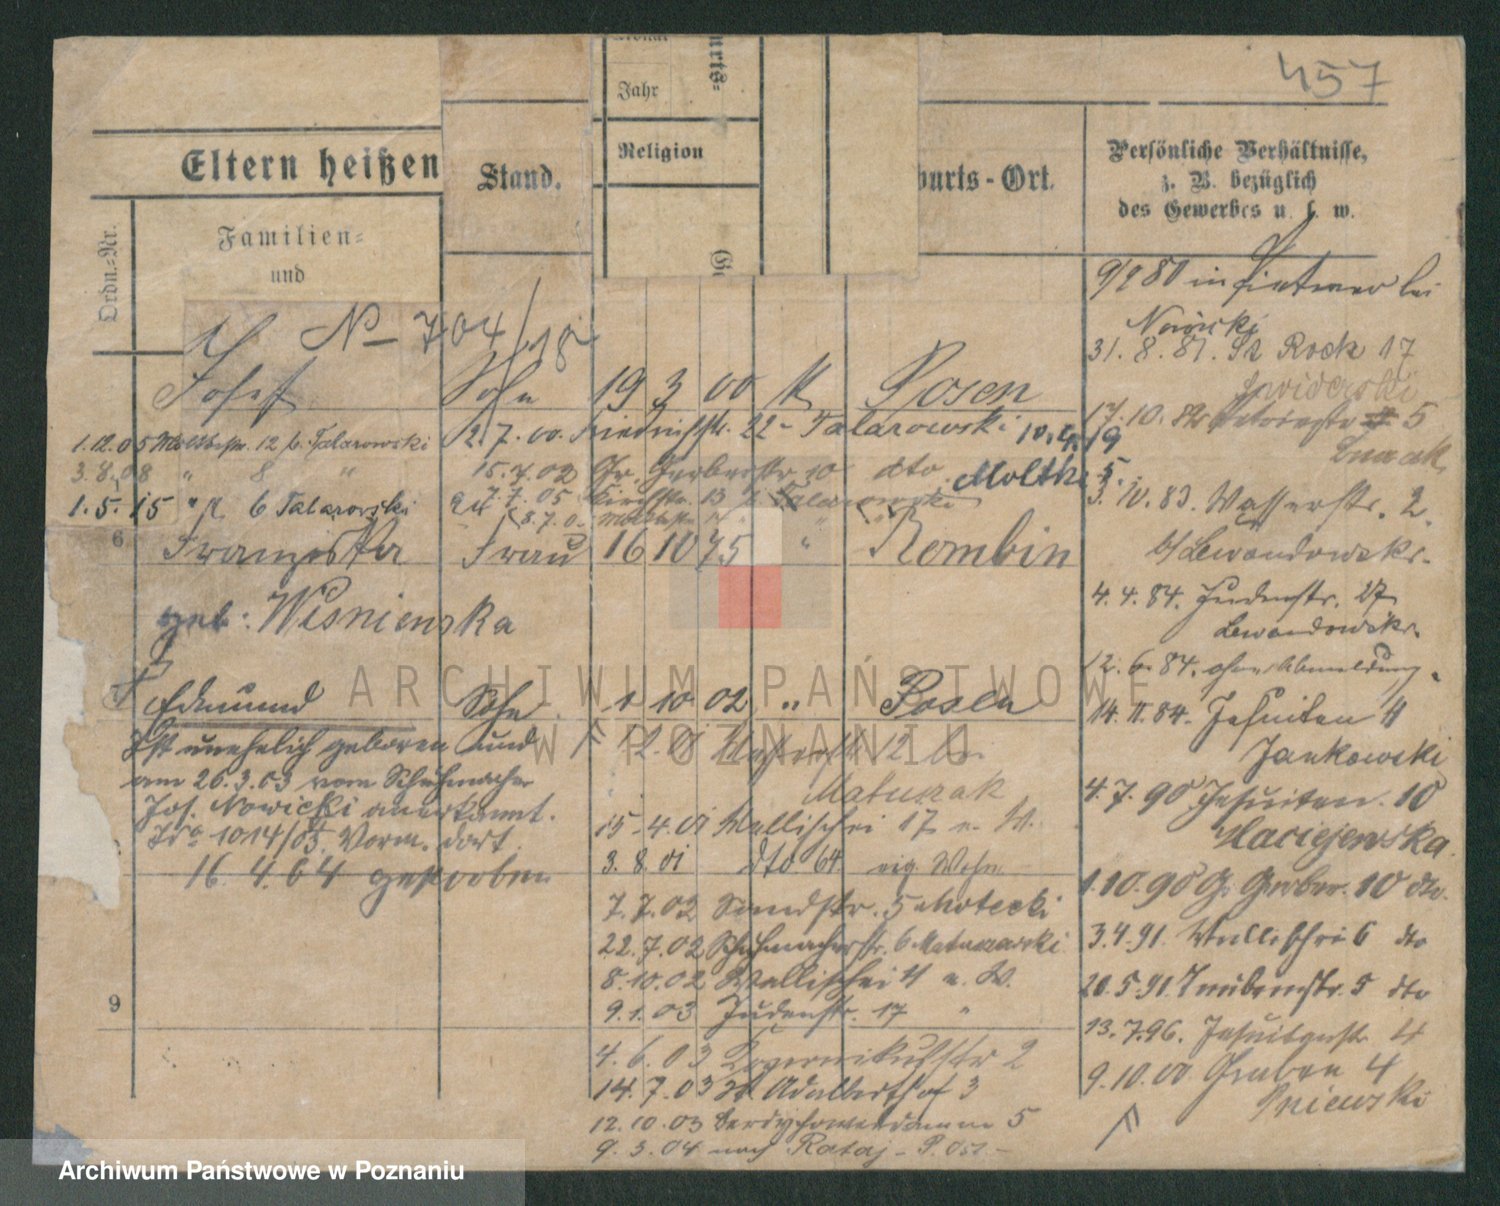 457
Jahr
Religion
Eltern heißen
Stand.
burts-Ort.
Persönliche Verhältnisse,
z. B. bezüglich
des Gewerbes u. s. w.
Ordn.-Nr.
Familien-
und
No 704/18
Josef Sohn 19 3 00 K Posen
1.12.05 Moltkestr. 12 b. Talarowski
2.7.00. Friedrichstr. 22 - Talarowski 10.4.19
3.8.08 " 8 "
15.7.02 Gr. Gerberstr. 10 dto. Moltk 5.
1.5.15 " 6 Talarowski
7.7.05 13 Talarowski
6
Franziska Frau 16 10 75 " Rombin
geb: Wisniewska
Edmund Sohn 1 10 02 " Posen
Ist unehelich geboren und
am 26.3.03 vom Schuhmacher
Jos. Nowicki anerkannt.
1014/03. Vorm. dort.
16. 4. 04 gestorben
9
12 b.
Matuzak
15.4.01 Wallischei 17 e. W.
3.8.01 dto 64 eig. Wohn.
7.7.02 Sandstr. 5 Motecki
22.7.02 Schuhmacherstr. 6
8.10.02 Wallischei 4 e. W.
9.1.03 Judenstr. 17 "
4.6.03 Kopernikusstr 2
14.7.03 St Adalberthof 3
12.10.03 Berdychowerdamm 5
9.3.04 nach Rataj - P. Ost -
9/9 80 in bei
Nowicki
31.8.81. St Rock 17
Swiderski
17.10. 5
3.10.83. Wasserstr. 2.
b/Lewandowski.
4.4.84. Judenstr. 27
Lewandowski.
12.6.84. ohne Abmeldung.
14.11.84. Jesuiten 4
Jankowski
4.7.90 Jesuiten. 10
Maciejewska.
1.10.90 Gr. Gerber. 10 dto.
3.4.91. Wallischei 6 dto
20.5.91. 5 dto
13.7.96. Jesuitenstr. 4
9.10.00 Graben 4
Pniewski
ARCHIWUM PAŃSTWOWE
W POZNANIU
Archiwum Państwowe w Poznaniu